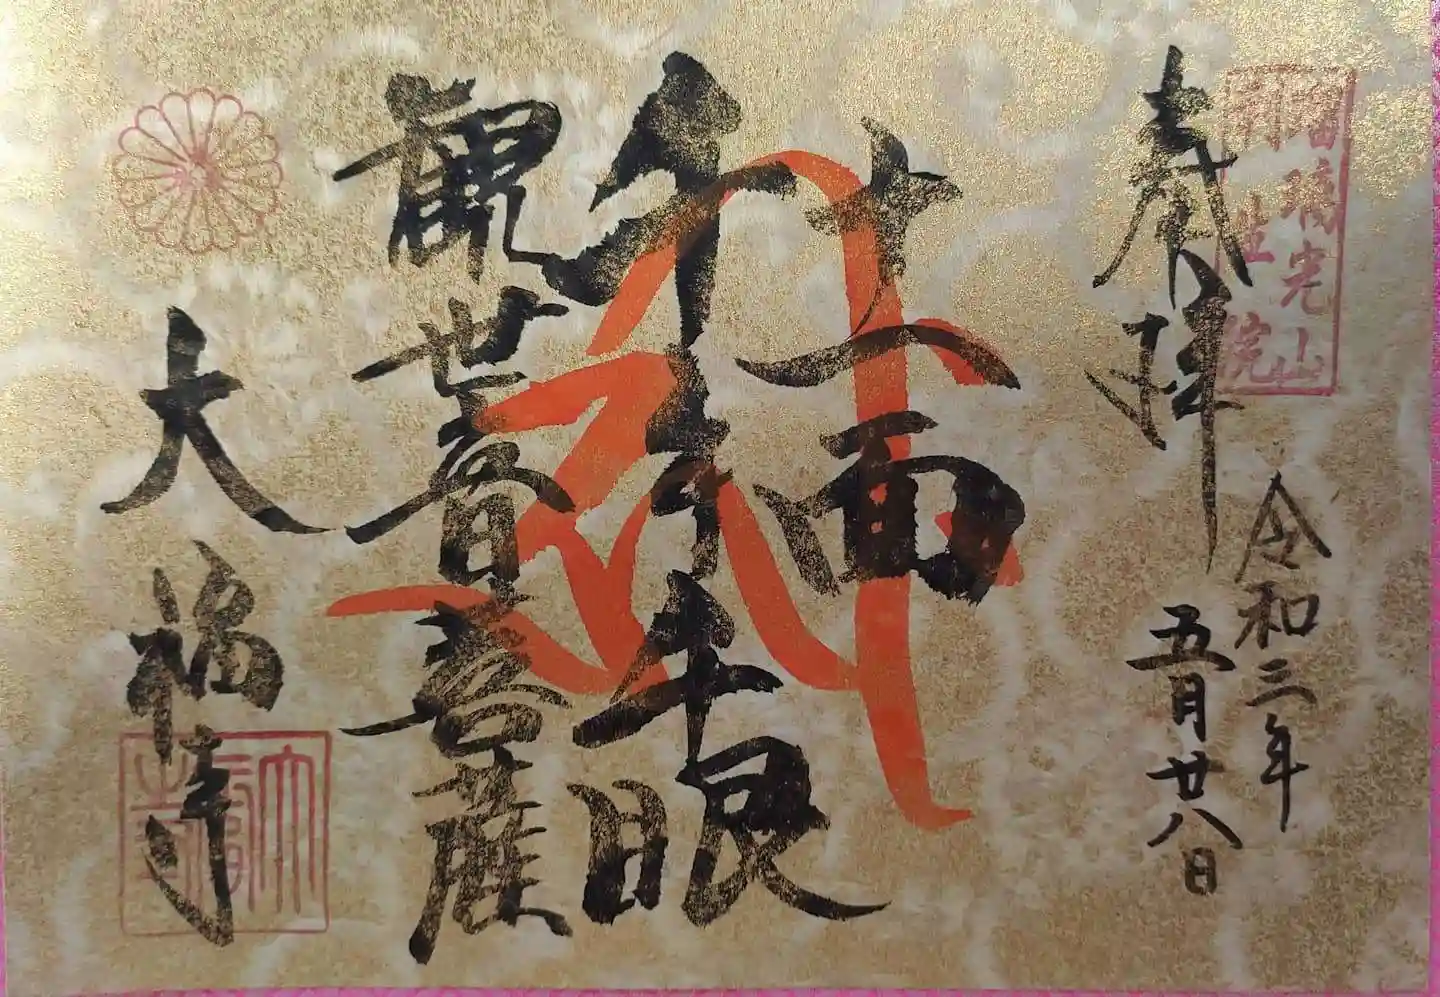 瑠璃光山
利生院
奉拝
令和三年
五月廿八日
十一面
千手千眼
観世音菩薩
大福寺